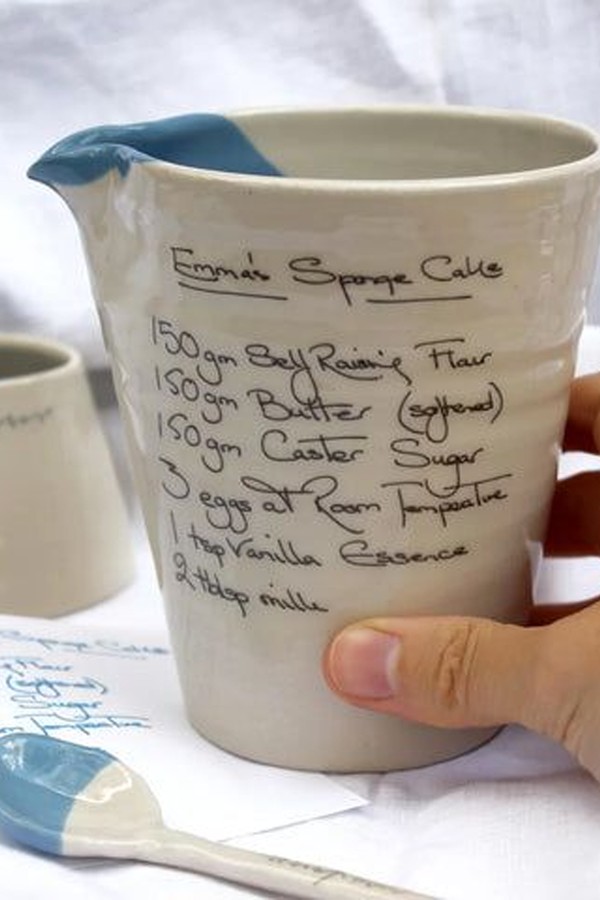 Emma's Sponge Cake
150gm Self Raising Flour
150gm Butter (softened)
150gm Caster Sugar
3 eggs at Room Temperature
1 tsp Vanilla Essence
2 tblsp milk
Sponge Cake
Flour
(softened)
Sugar
Temperature